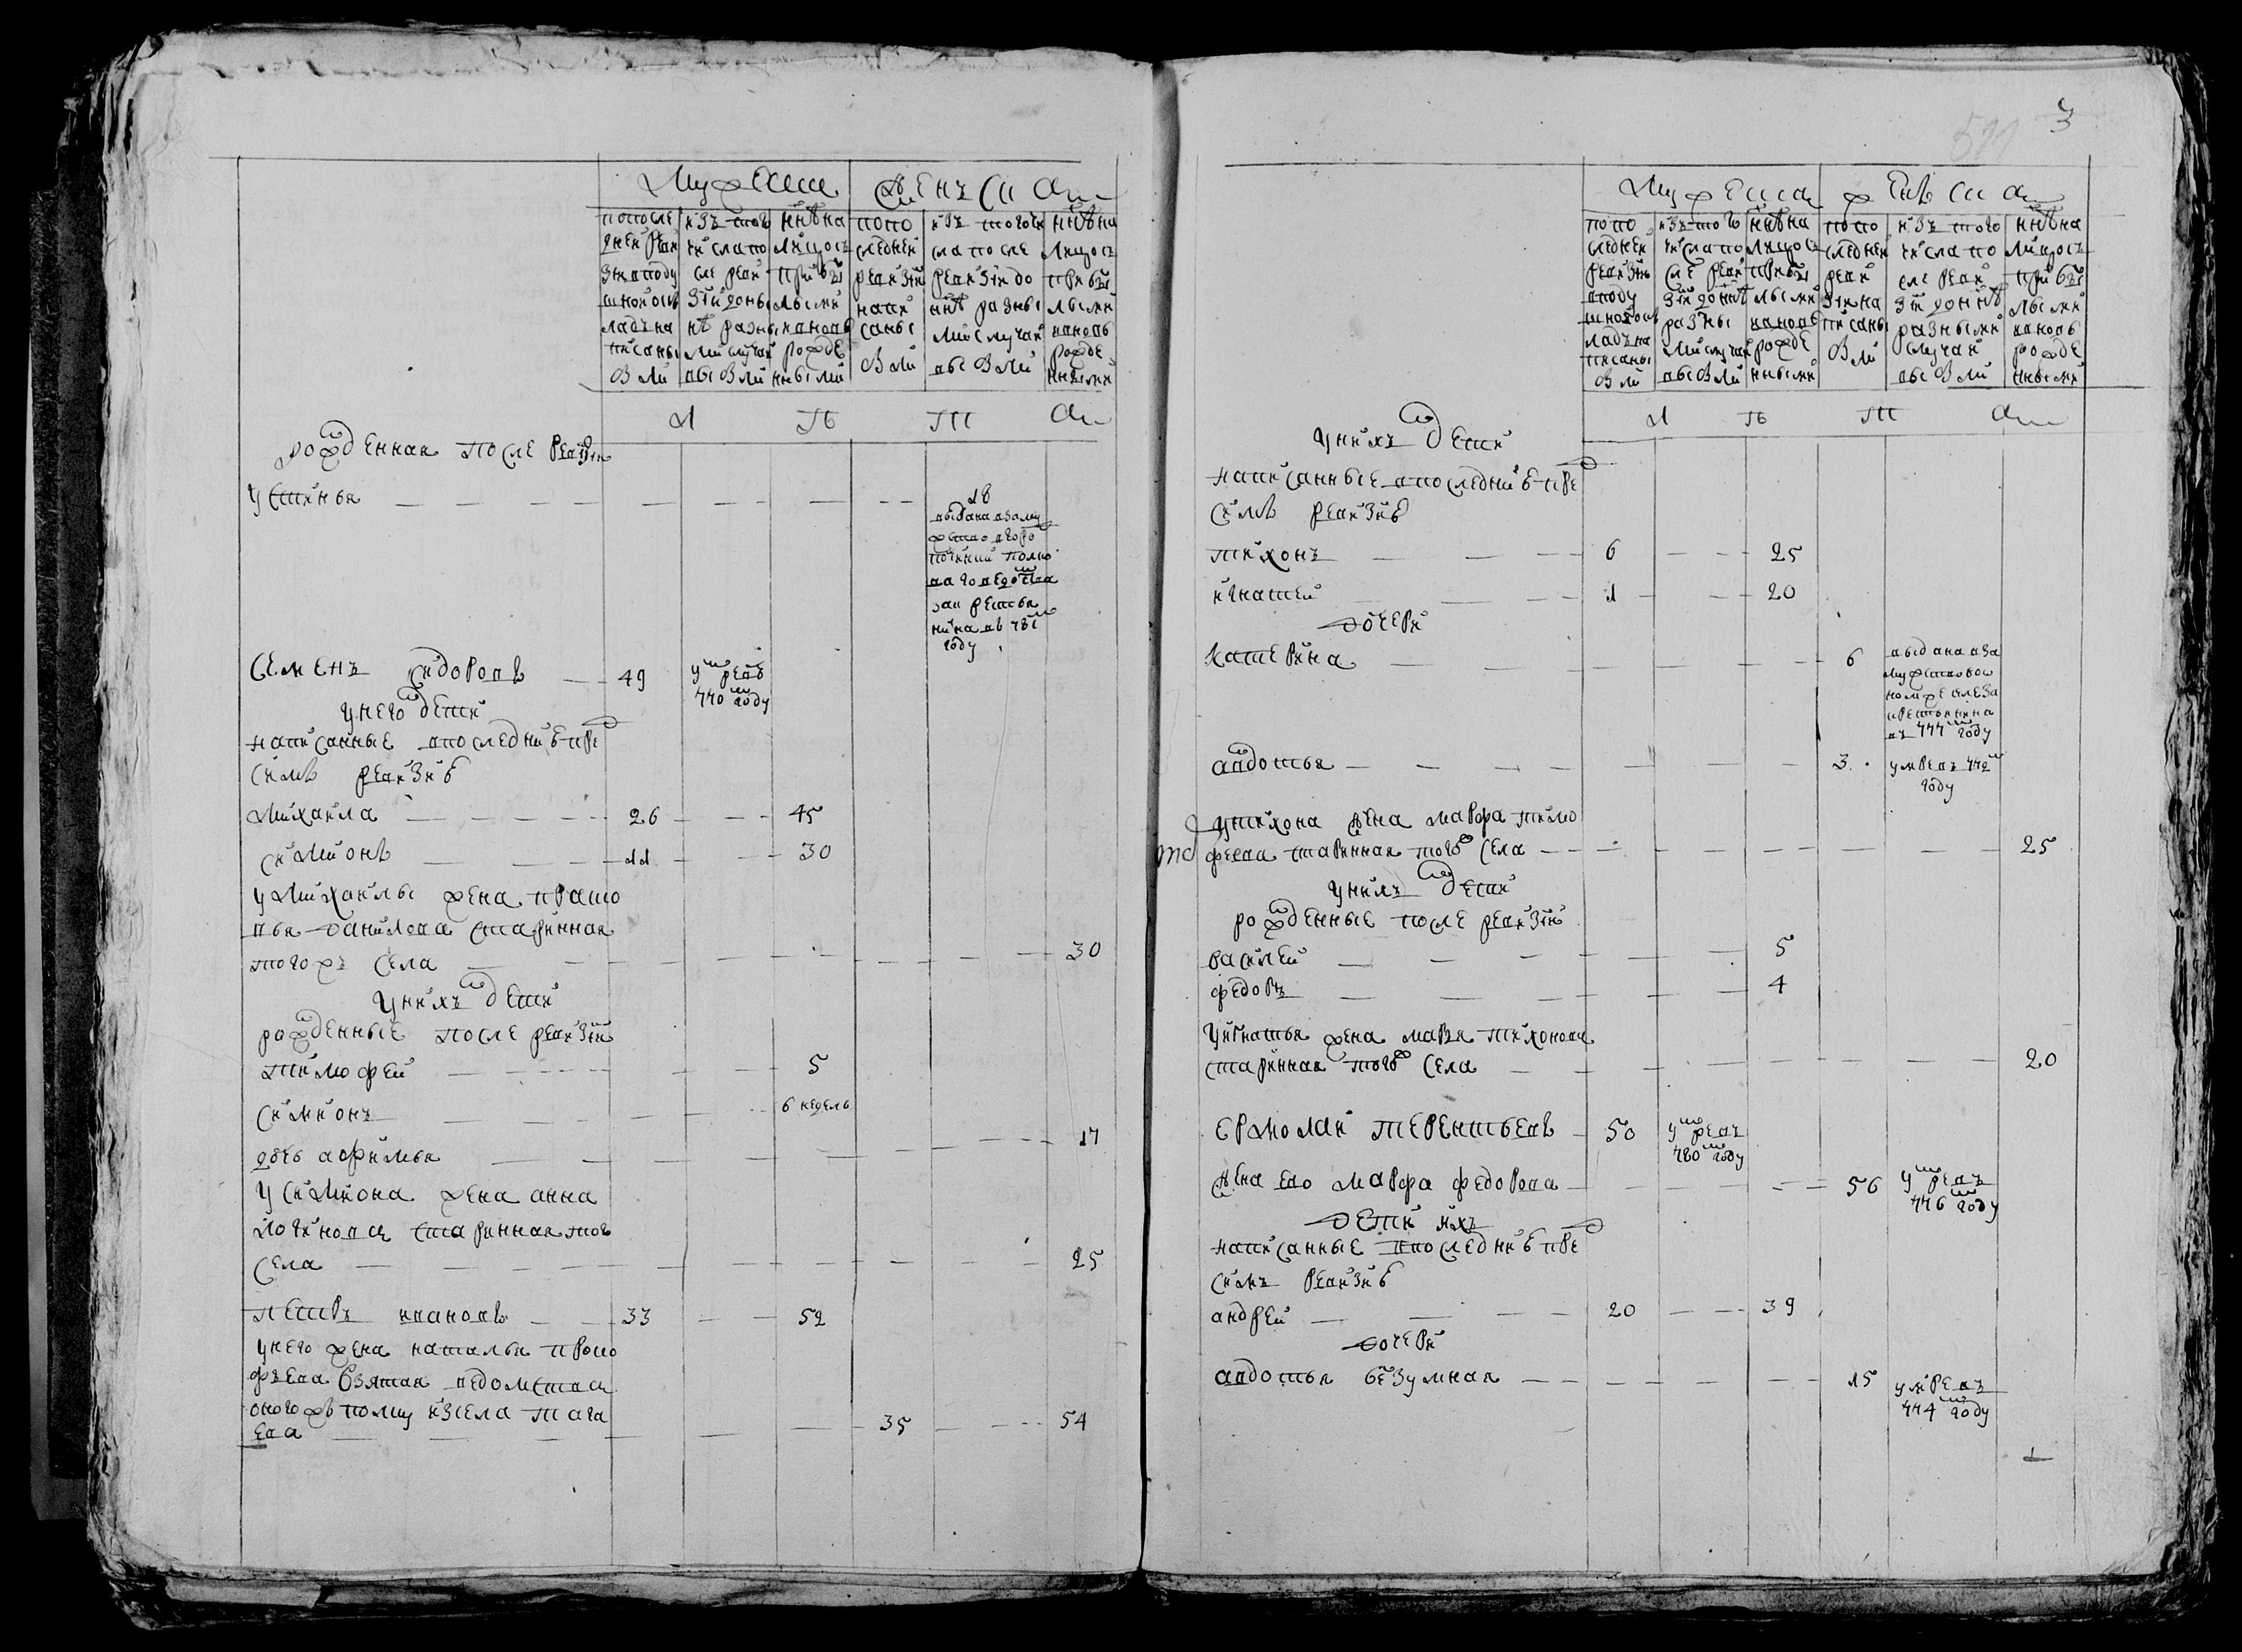 Мужеска
Женска
попосле
дней реви
зии поду
шной ок
ладъ на
писаны
были
изъ того
числа по
сле реви
зии доны
нѣ разны
ми случаи
выбыли
ннѣ на
лицо съ
прибы
лыми
и вновь
рожде
нными
попо
следней
ревизии
напи
саны
были
изъ того чи
сла после
ревизии до
ннѣ разны
ми случаи
выбыли
ннѣ на
лицо съ
прибы
лыми
и вновь
рожде
нными
л
ѣ
т
а
рожденная после ревизии
устинья
18
выдана взаму
жство
году
Семенъ Сидоровъ 49 умре
770 году
у него дети
написанные впоследней пре
симъ ревизие
михаила 26 45
симионъ 11 30
у михаилы жена праско
вья данилова старинная
тогожъ села 30
у нихъ дети
рожденные после ревизии
тимофей 5
симионъ 6 недель
дочь афимья 17
у симиона жена анна
логинова старинная того
села 25
петръ ивановъ 33 52
у него жена наталья проко
фьева взятая
оногожъ полку изсела тага
ева 35 54
3
Мужеска
женска
попо
следней
ревизии
вподу
шной ок
ладъ на
писаны
были
изъ того
числа по
сле реви
зии доннѣ
разны
ми случаи
выбыли
ннѣ на
лицо съ
прибы
лыми
и вновь
рожде
нными
попо
следней
реви
зии на
писаны
были
изъ того
числа по
сле реви
зии доннѣ
разными
случаи
выбыли
ннѣ на
лицо съ
прибы
лыми
и вновь
рожде
нными
л
ѣ
т
а
у нихъ дети
написанные впоследней пре
симъ ревизие
тихонъ 6 25
игнатей 1 20
дочери
катерина 6 выдана вза
мужство во
номже селе за
крестьянина
въ 777 году
авдотья 3 умре въ 772
году
у тихона жена марфа тимо
феева старинная тогожъ села 25
у нихъ дети
рожденные после ревизии
василей 5
федоръ 4
у игнатья жена марья тихонова
старинная тогожъ села 20
ермолай терентьевъ 50 умре въ
780 году
жена ево марфа федорова 56 умре въ
776 году
дети ихъ
написанные впоследней пре
симъ ревизие
андрей 20 39
дочери
авдотья безумная 15 умре въ
774 году